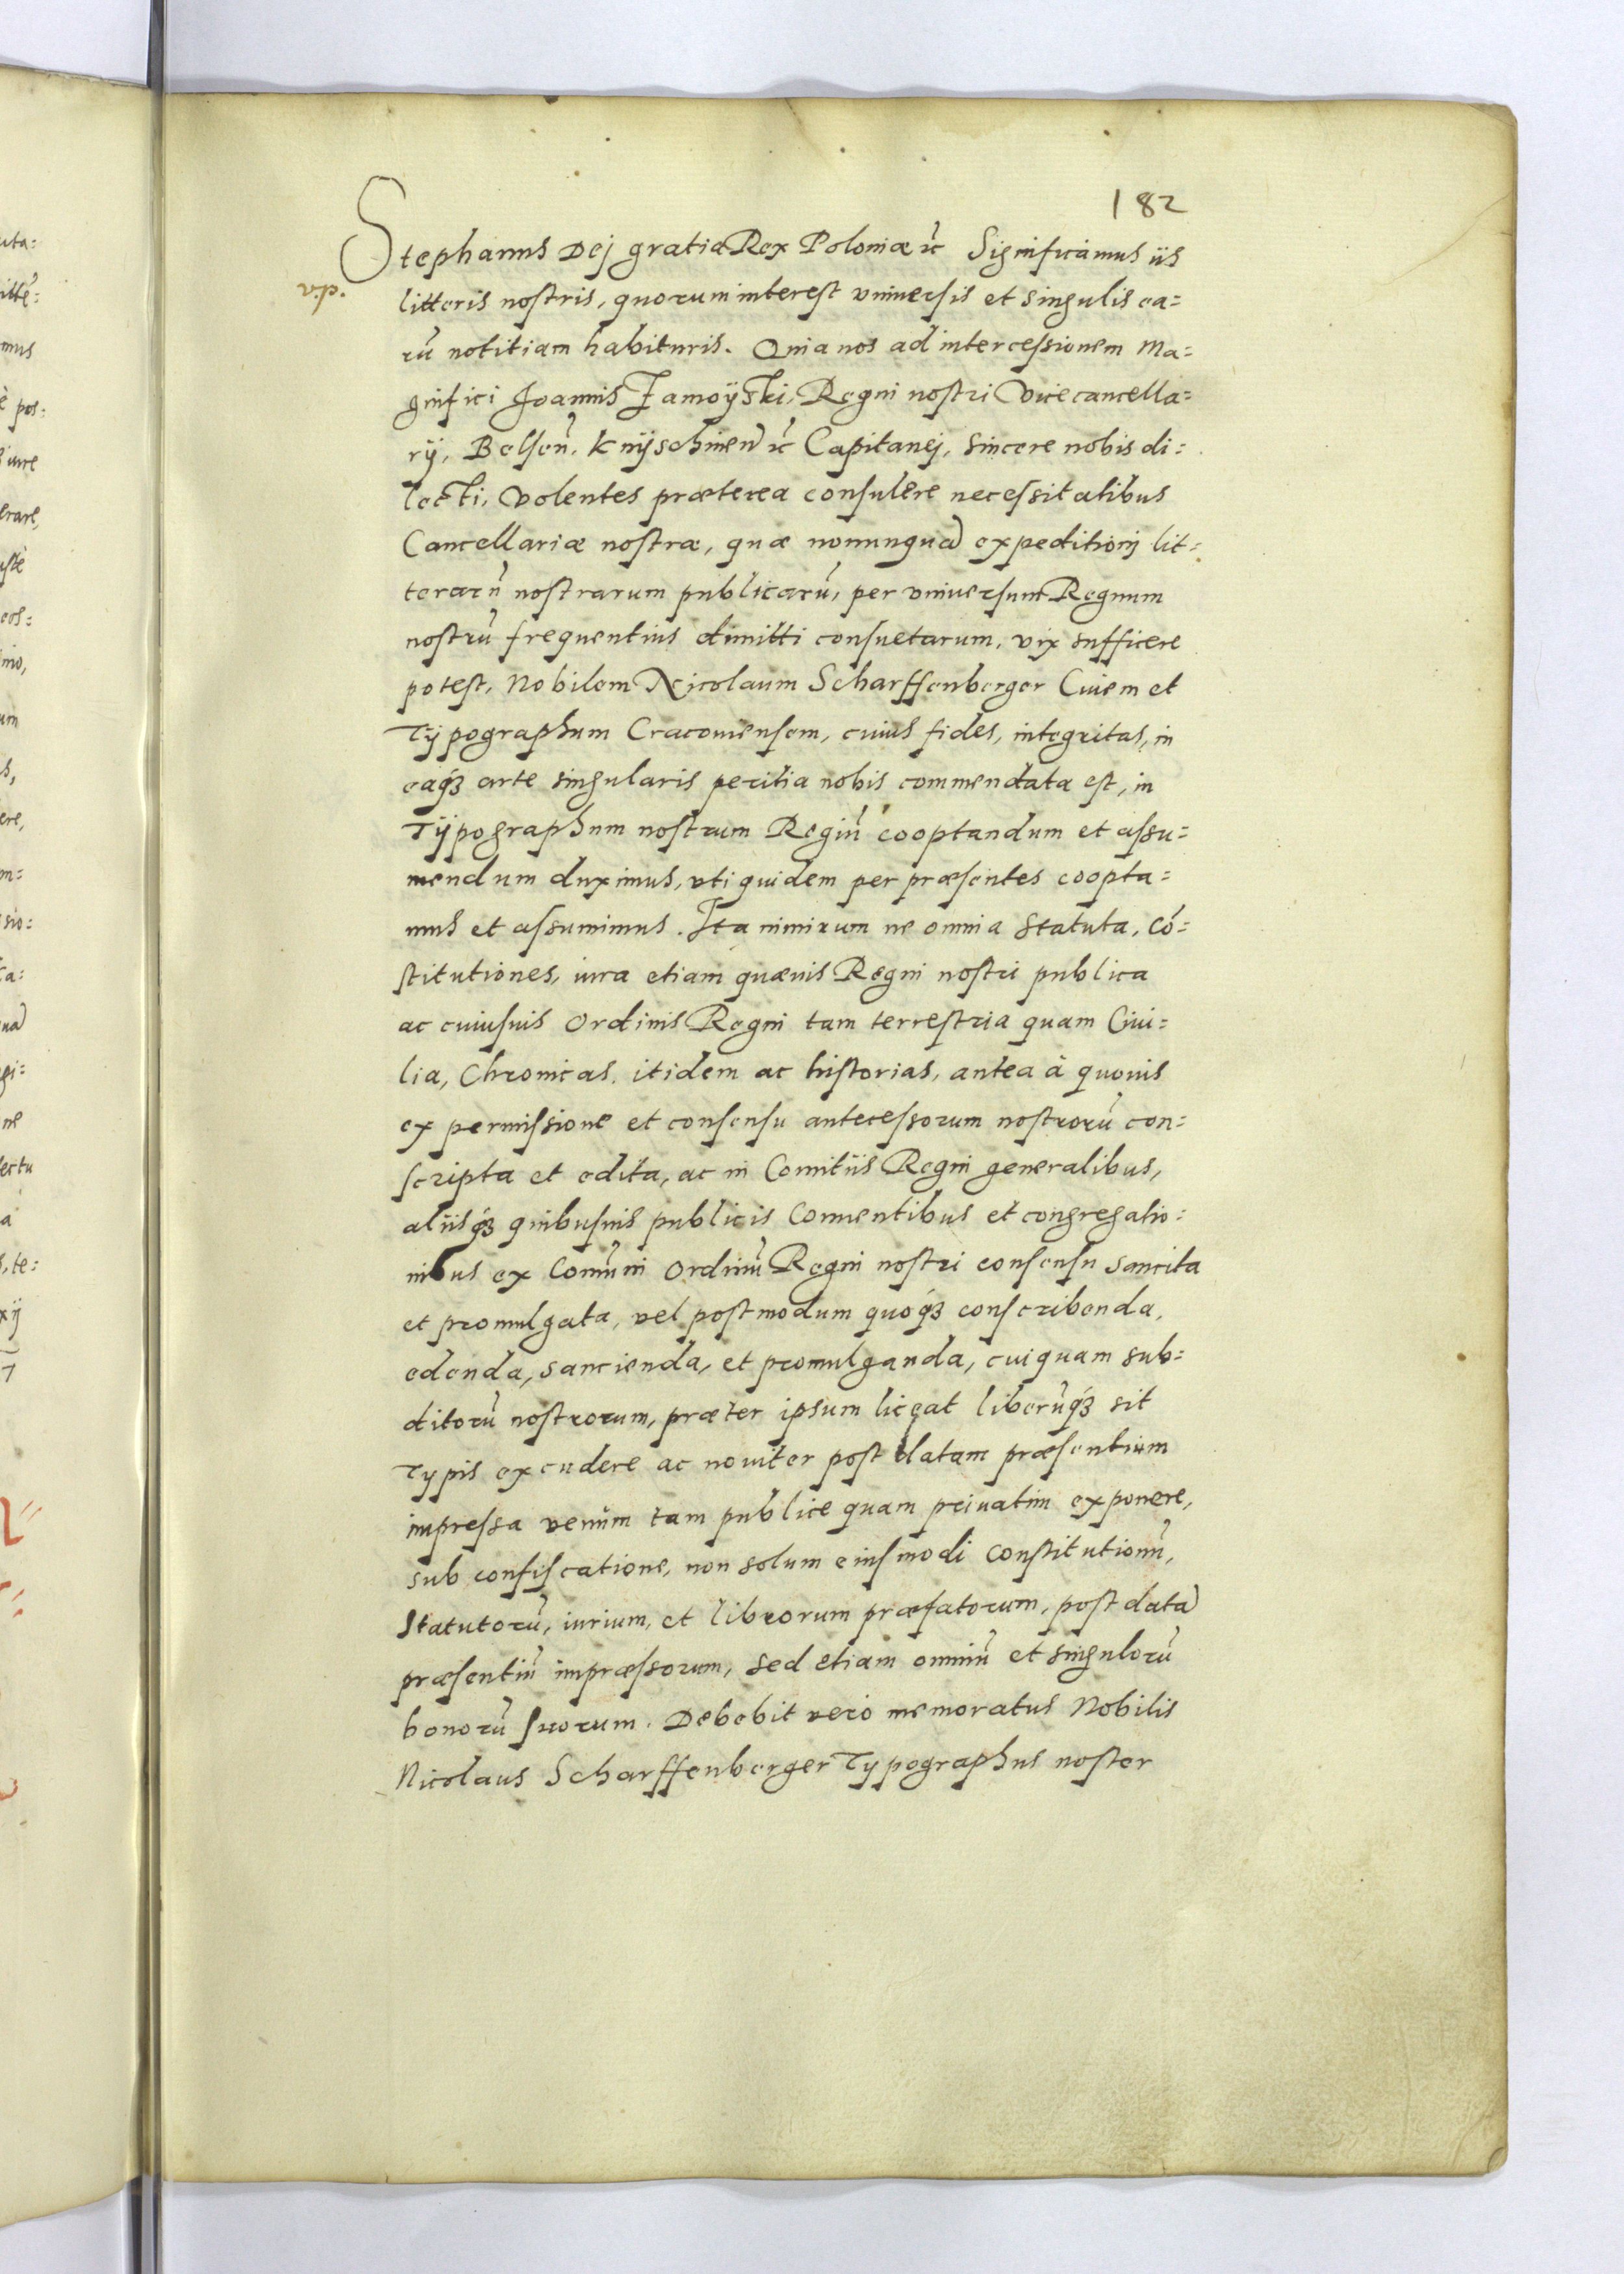 182
Stephanus Dej gratia Rex Poloniæ &c̃ Significamus iis
v.p.
litteris nostris, quorum interest vniuersis et singulis ea=
rũ notitiam habituris. Quia nos ad intercessionem Ma=
gnifici Joannis Zamoÿski, Regni nostri Vicecancella=
rÿ, Belsen̄, Knÿschinen̄ &c̃ Capitanej, sincere nobis di=
lecti, Volentes præterea consulere necessitatibus
Cancellariæ nostræ, quæ nonnunquã expeditionj lit=
terarũ nostrarum publicarũ, per vniuersum Regnum
nostrũ frequentius dimitti consuetarum, vix sufficere
potest, Nobilem Nicolaum Scharffenberger Ciuem et
Tÿpographum Cracouiensem, cuius fides, integritas, in
eaq́ꝫ arte singularis peritia nobis commendata est, in
Tÿpographum nostrum Regiũ cooptandum et assu=
mendum duximus, vti quidem per præsentes coopta=
mus et assumimus. Ita nimirum ne omnia Statuta, Cõ=
stitutiones, iura etiam quæuis Regni nostri publica
ac cuiusuis Ordinis Regni tam terrestria quam Ciui=
lia, Chronicas, itidem ac historias, antea à quouis
ex permissione et consensu antecessorum nostrorũ con=
scripta et edita, ac in Comitiis Regni generalibus,
aliisq́ꝫ quibusuis publicis Conuentibus et congregatio=
nibus ex Comũni Ordinũ Regni nostri consensu sancita
et promulgata, vel postmodum quoq́ꝫ conscribenda,
edenda, sancienda, et promulganda, cuiquam sub=
ditorũ nostrorum, præter ipsum liceat liberũq́ꝫ sit
Typis excudere ac nouiter post datam præsentium
impressa venum tam publice quam priuatim exponere,
sub confiscatione, non solum eiusmodi Constitutionũ,
Statutorũ, iurium, et librorum præfatorum, post datã
præsentiũ impræssorum, sed etiam omniũ et singulorũ
bonorũ suorum. Debebit vero memoratus Nobilis
Nicolaus Scharffenberger Typographus noster